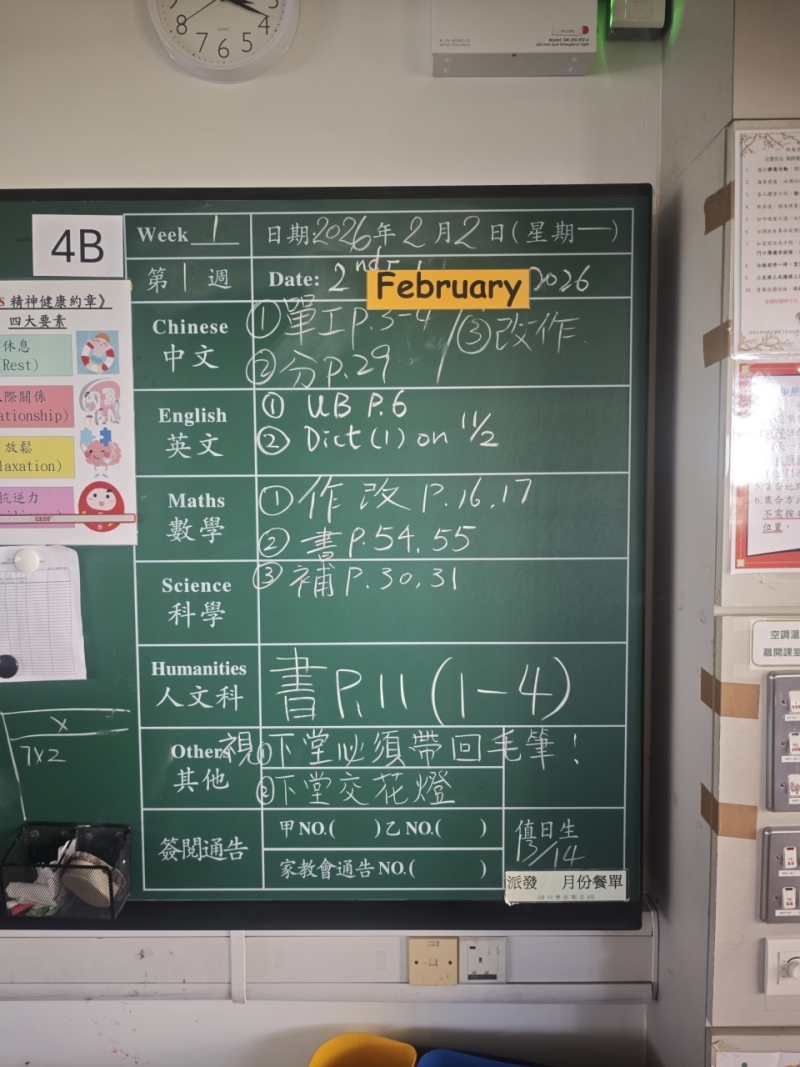 4B
Week 1
日期2026年2月2日(星期一)
第1週
Date: 2nd February 2026
精神健康約章》
四大要素
休息
(Rest)
際關係
放鬆
抗逆力
Chinese
中文
①單工P.3-4 / ③改作
②分P.29
English
英文
① UB P.6
② Dict(1) on 11/2
Maths
數學
①作改 P.16,17
②書P.54,55
Science
科學
③補P.30,31
Humanities
人文科
書P.11(1-4)
Others
其他
視①下堂必須帶回毛筆!
②下堂交花燈
簽閱通告
甲NO.( )乙NO.( )
家教會通告NO.( )
值日生
13/14
派發 月份餐單
x
7x2
空調溫
離開課室
不需按
位置。